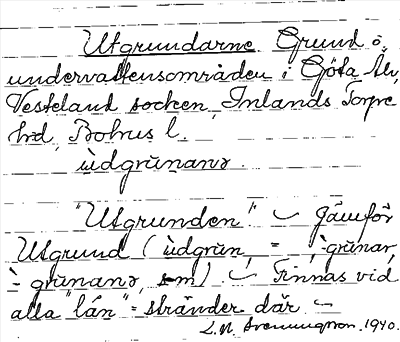 Utgrundarne Grund o.
undervattensområden i Göta Älv,
Västerland socken, Inlands Torpe
hrd, Bohus l.
ùdgrùnanɿ.
"Utgrunden" ~ Jämför
Utgrund (ùdgrùn, = , ̀-grùnar,
̀-grùnanɿ, sm) ~ Finnas vid
alla "lån" = stränder där ~
1940.